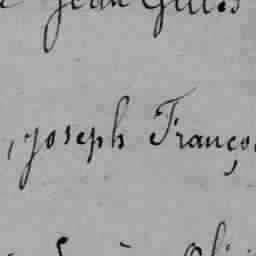 Jean Gilles
, joseph Franço